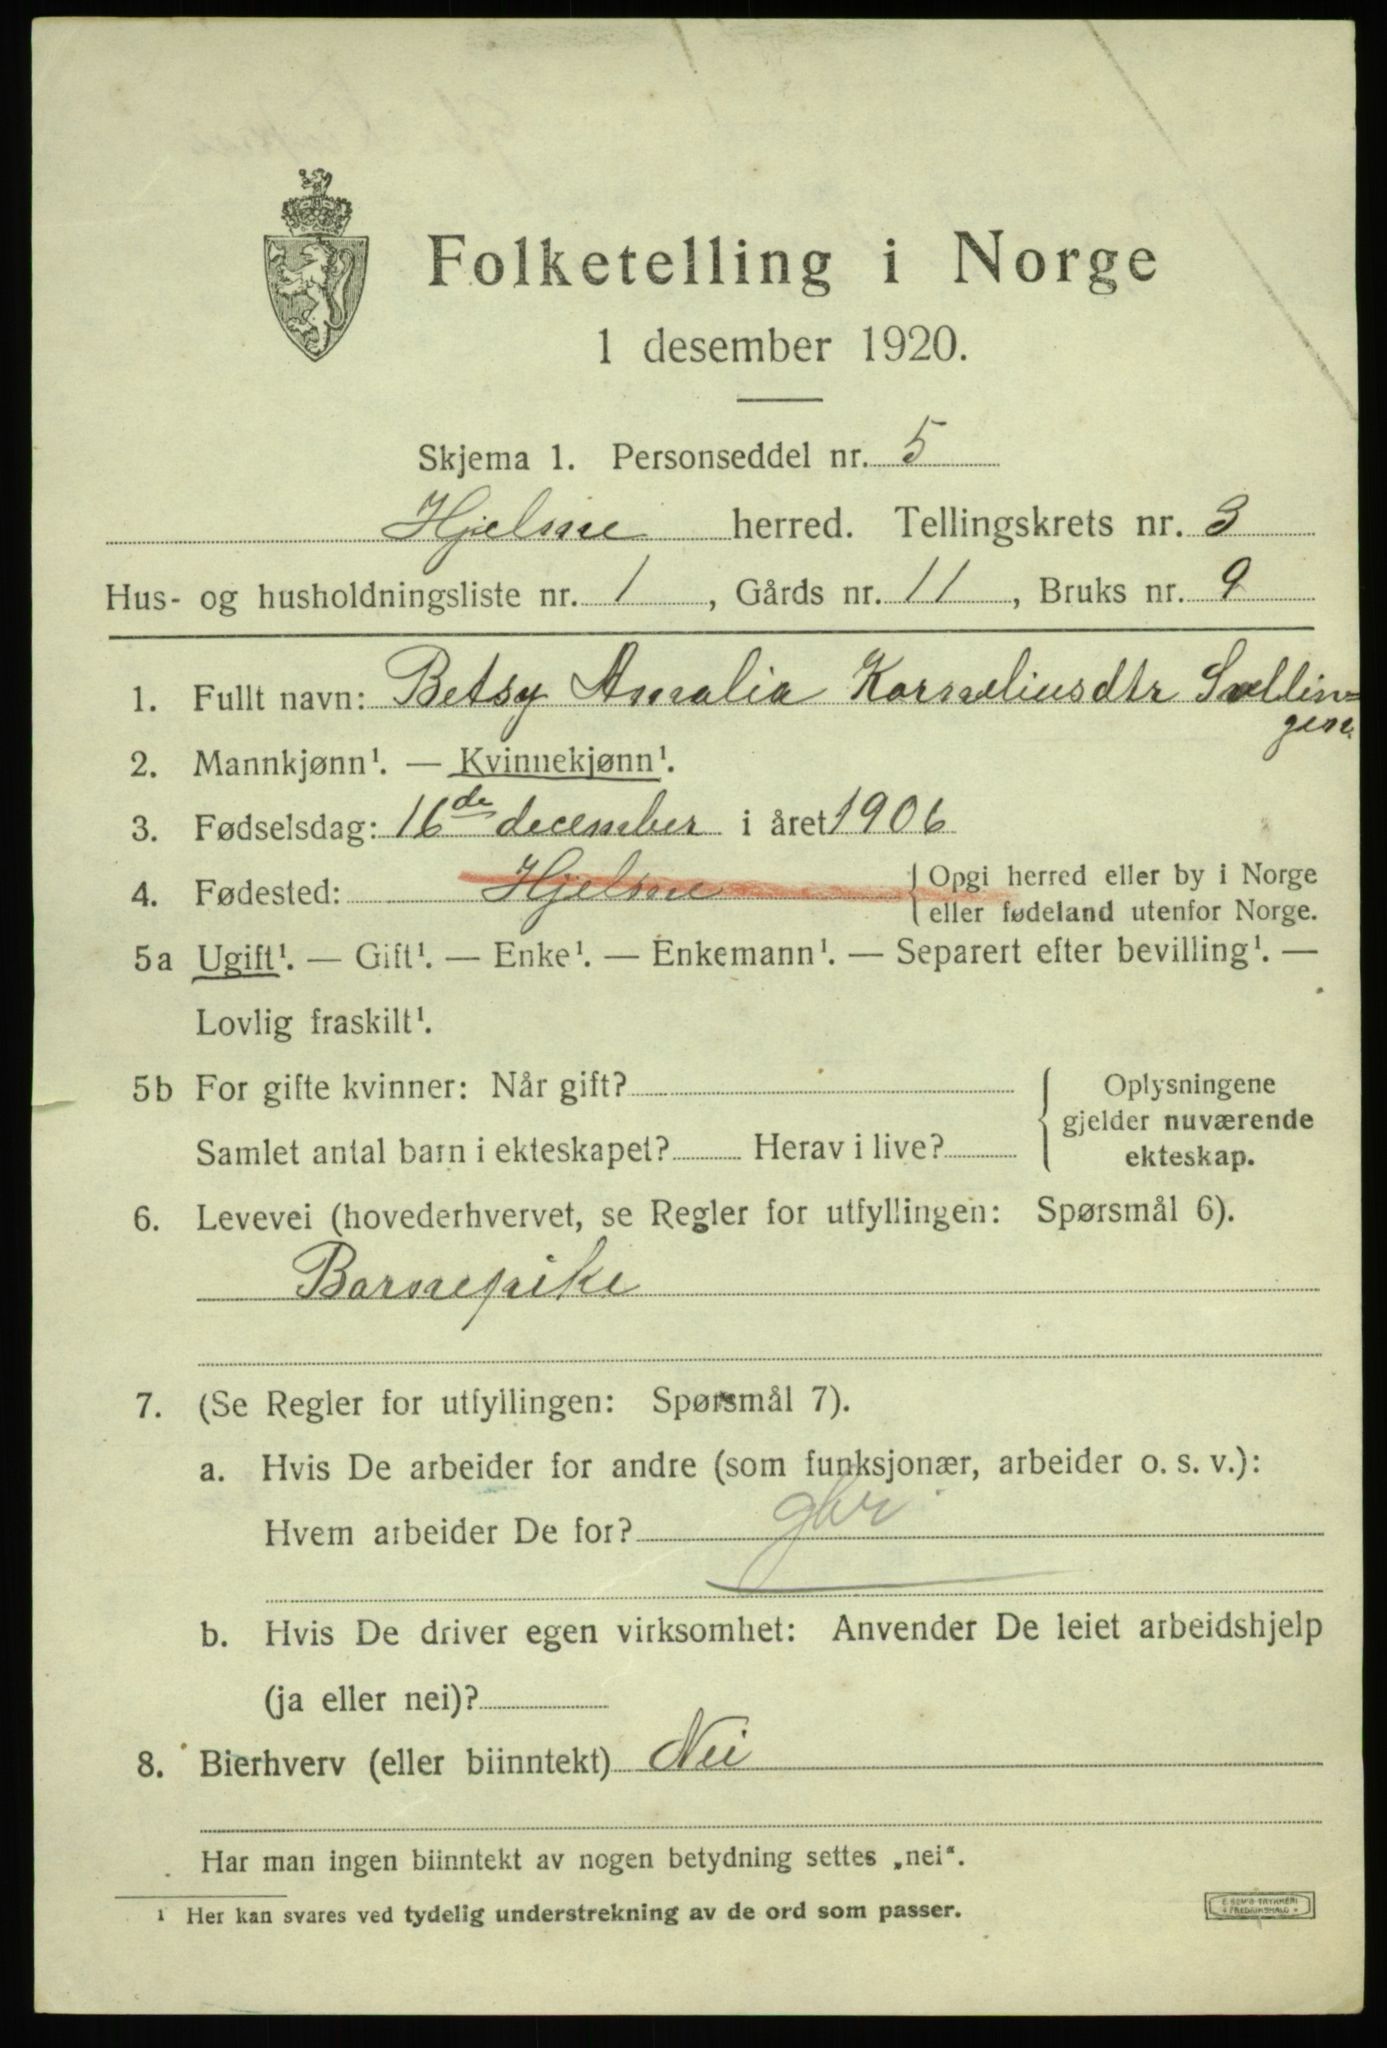 Folketelling i Norge
1 desember 1920.
Skjema 1. Personseddel nr. 5
Hjelme herred. Tellingskrets nr. 3
Hus- og husholdningsliste nr. 1, Gårds nr. 11, Bruks nr. 9
1. Fullt navn: Betsy Amalia Korneliusdtr Sællin=
gen.
2. Mannkjønn¹. — Kvinnekjønn¹.
3. Fødselsdag: 16de december i året 1906
4. Fødested: Hjelme { Opgi herred eller by i Norge
eller fødeland utenfor Norge.
5a Ugift¹. — Gift¹. — Enke¹. — Enkemann¹. — Separert efter bevilling¹. —
Lovlig fraskilt¹.
5b For gifte kvinner: Når gift? { Oplysningene
gjelder nuværende
Samlet antal barn i ekteskapet? Herav i live? ekteskap.
6. Levevei (hovederhvervet, se Regler for utfyllingen: Spørsmål 6).
Barnepike
7. (Se Regler for utfyllingen: Spørsmål 7).
a. Hvis De arbeider for andre (som funksjonær, arbeider o. s. v.):
Hvem arbeider De for? gbr
b. Hvis De driver egen virksomhet: Anvender De leiet arbeidshjelp
(ja eller nei)?
8. Bierhverv (eller biinntekt) Nei
Har man ingen biinntekt av nogen betydning settes „nei“.
¹ Her kan svares ved tydelig understrekning av de ord som passer.
E. SEM'S TRYKKERI
FREDRIKSHALD